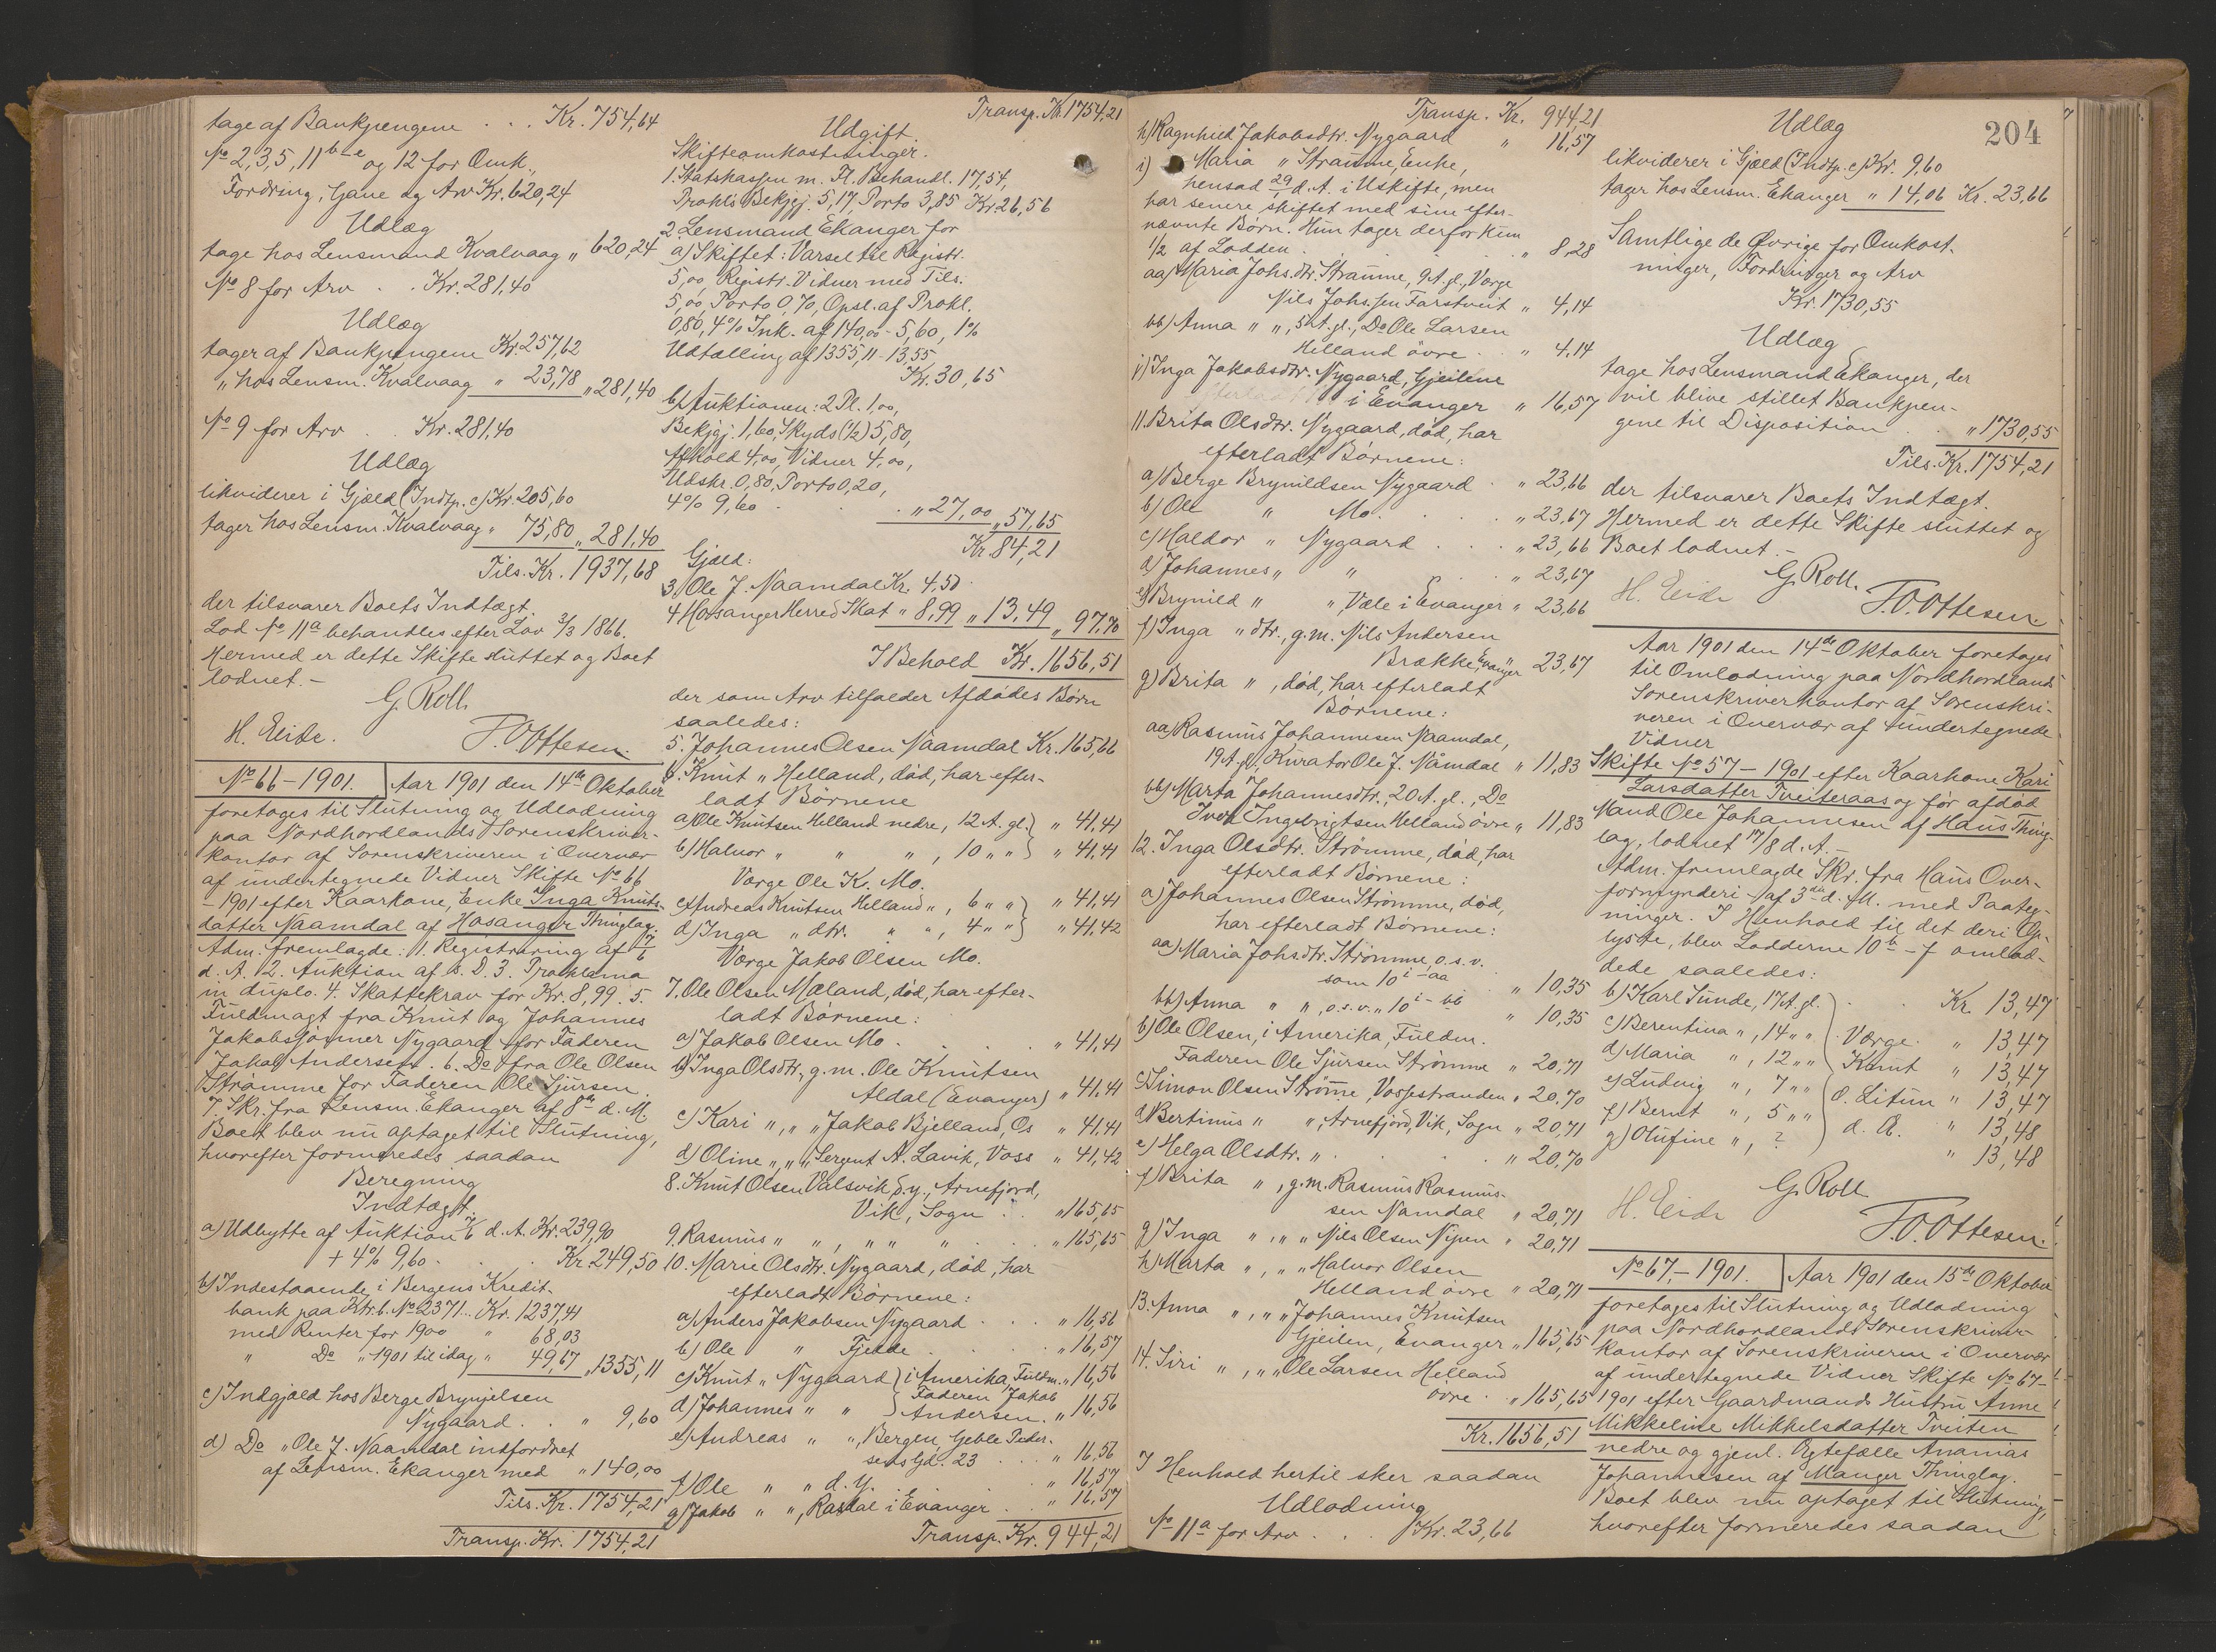 tage af Bankpengene . . . Kr. 754,64
No 2, 3, 5, 11 b-e og 12 for Omk.,
Fordring, Gave og Arv Kr. 620,24
Udlæg
tage hos Lensmand Kvalvaag „ 620,24
No 8 for Arv . . Kr. 281,40
Udlæg
tager af Bankpengene Kr. 257,62
„ hos Lensm. Kvalvaag „ 23,78 „ 281,40
No 9 for Arv . . Kr. 281,40
Udlæg
likviderer i Gjæld (Indtp. c) Kr. 205,60
tager hos Lensm. Kvalvaag „ 75,80 „ 281,40
Tils. Kr. 1937,68
der tilsvarer Boets Indtægt.
Lod No 11a behandles efter Lov 3/3 1866.
Hermed er dette Skifte sluttet og Boet
lodnet. –
G. Roll
H. Eide. T. O. Ottesen.
No 66 – 1901. Aar 1901 den 14de Oktober
foretages til Slutning og Udlodning
paa Nordhordlands Sorenskriver-
kontor af Sorenskriveren i Overvær
af undertegnede Vidner Skifte No 66
– 1901 efter Kaarkone, Enke Inga Knuts-
datter Naamdal af Hosanger Thinglag.
Adm. fremlagde: 1. Registrering af 7/6
d. A. 2. Auktion af s. D. 3. Proklama
in duplo. 4. Skattekrav for Kr. 8,99. 5.
Fuldmagt fra Knut og Johannes
Jakobssønner Nygaard for Faderen
Jakob Andersen. 6. Do fra Ole Olsen
Strømme for Faderen Ole Sjursen.
7. Skr. fra Lensm. Ekanger af 8de d. M.
Boet blev nu optaget til Slutning,
hvorefter formeredes saadan
Beregning
Indtægt.
a) Udbytte af Auktion 7/6 d. A. Kr. 239,90
+ 4% 9,60 . . . Kr. 249,50
b) Indestaaende i Bergens Kredit-
bank paa Ktr. b. No 2371... Kr. 1237,41
med Renter for 1900 „ 68,03
„ Do „ 1901 til idag „ 49,67 „ 1355,11
c) Indgjæld hos Berge Brynjelsen
Nygaard . . „ 9,60
d) Do „ Ole J. Naamdal indfordret
af Lensm. Ekanger med „ 140,00
Tils. Kr. 1754,21
Transp. Kr. 1754,21
Transp. Kr. 1754,21
Udgift.
Skifteomkostninger.
1. Statskassen m. Fl. Behandl. 17,54,
Prokls Bekjgj. 5,17, Porto 3,85 Kr. 26,56
2. Lensmand Ekanger for
a) Skiftet: Varsel til Registr.
5,00, Registr. Vidner med Tils.
5,00, Porto 0,70, Opsl. af Prokl.
0,80, 4% Ink. af 140,00 – 5,60, 1%
Udtælling af 1355,11 – 13,55
Kr. 30,65
b) Auktionen: 2 Pl. 1,00,
Bekjgj. 1,60, Skyds (1/2) 5,80,
Afhold 4,00, Vidner 4,00,
Udskr. 0,80, Porto 0,20,
4% 9,60 . . . „ 27,00 „ 57,65
Kr. 84,21
Gjæld:
3. Ole J. Naamdal Kr. 4,50
4. Hosanger Herred Skat „ 8,99 „ 13,49 „ 97,70
I Behold Kr. 1656,51
der som Arv tilfalder Afdødes Børn
saaledes:
5. Johannes Olsen Naamdal Kr. 165,66
6. Knut „ Helland, død, har efter-
ladt Børnene
a) Ole Knutsen Helland nedre, 12 A. gl. „ 41,41
b) Halvor „ „ „, 10 „ „ „ 41,41
Værge Ole K. Mo.
c) Andreas Knutsen Helland „, 6 „ „ „ 41,41
d) Inga „ dtr. „ „, 4 „ „ „ 41,42
Værge Jakob Olsen Mo.
7. Ole Olsen Mæland, død, har efter-
ladt Børnene:
a) Jakob Olsen Mo . . . . „ 41,41
b) Inga Olsdtr., g. m. Ole Knutsen
Aldal (Evanger) „ 41,41
c) Kari „, „ „ Jakob Bjelland, Os „ 41,41
d) Oline „, „ „ Sergent A. Lavik, Voss „ 41,42
8. Knut Olsen Valsvik, d. y., Arnefjord,
Vik, Sogn . . „ 165,65
9. Rasmus „ „, „ „ „ . . „ 165,65
10. Marie Olsdtr. Nygaard, død, har
efterladt Børnene:
a) Anders Jakobsen Nygaard . . . „ 16,56
b) Ole „ Fjelde . . . . „ 16,57
c) Knut „ Nygaard i Amerika, Fuldm. „ 16,56
d) Johannes „ „ Faderen Jakob Andersen. „ 16,56
e) Andreas „ „, Bergen, Geble Peder-
sens Gd. 23 . . . „ 16,56
f) Ole „ „ d. y. . . „ 16,57
g) Jakob „ „, Rasdal i Evanger . . „ 16,57
Transp. Kr. 944,21
Transp. Kr. 944,21
h) Ragnhild Jakobsdtr. Nygaard „ 16,57
i) Maria „ Strømme, Enke,
hensad 29/ d. A. i Uskifte, men
har senere skiftet med sine efter-
nævnte Børn. Hun tager derfor kun
1/2 af Lodden . . . „ 8,28
aa) Maria Johs.dtr. Strømme, 9 A. gl., Værge
Nils Johs.sen Farstveit „ 4,14
bb) Anna „ „, 5 A. gl., Do Ole Larsen
Helland øvre . „ 4,14
j) Inga Jakobsdtr. Nygaard, Gjeilene
i Evanger „ 16,57
11. Brita Olsdtr. Nygaard, død, har
efterladt Børnene:
a) Berge Brynildsen Nygaard . „ 23,66
b) Ole „ Mo. . . . „ 23,67
c) Haldor „ Nygaard . . . „ 23,66
d) Johannes „ „ . . „ 23,67
e) Brynild „ „, Væle i Evanger „ 23,66
f) Inga „ dtr., g. m. Nils Andersen
Brække, Evanger „ 23,67
g) Brita „, død, har efterladt
Børnene:
aa) Rasmus Johannesen Naamdal,
19 A. gl., Kurator Ole J. Nåmdal „ 11,83
bb) Marta Johannesdtr., 20 A. gl., Do
Iver Ingebrigtsen Helland øvre „ 11,83
12. Inga Olsdtr. Strømme, død, har
efterladt Børnene:
a) Johannes Olsen Strømme, død,
har efterladt Børnene:
aa) Maria Johsdtr. Strømme, o. s. v.
som 10 i – aa . „ 10,35
bb) Anna „ „, o. s. v. „ 10 i – bb „ 10,35
b) Ole Olsen, i Amerika, Fuldm.
Faderen Ole Sjursen Strømme „ 20,71
c) Simon Olsen Strømme, Vossestranden „ 20,70
d) Bertinus „ „, Arnefjord, Vik, Sogn „ 20,71
e) Helga Olsdtr. „ . . . „ 20,70
f) Brita „, g. m. Rasmus Rasmus-
sen Namdal „ 20,71
g) Inga „, „ „ Nils Olsen Nipen „ 20,71
h) Marta „, „ „ Halvor Olsen
Helland øvre „ 20,71
13. Anna „, „ „ Johannes Knutsen
Gjeilen, Evanger „ 165,65
14. Siri „, „ „ Ole Larsen Helland
øvre . „ 165,65
Kr. 1656,51
I Henhold hertil sker saadan
Udlodning
No 11a for Arv . . . Kr. 23,66
204
Udlæg
likviderer i Gjæld (Indtp. c) Kr. 9,60
tager hos Lensm. Ekanger „ 14,06 Kr. 23,66
Samtlige de Øvrige for Omkost-
ninger, Fordringer og Arv
Kr. 1730,55
Udlæg
tage hos Lensmand Ekanger, der
vil blive stillet Bankpen-
gene til Disposition . . „ 1730,55
Tils. Kr. 1754,21
der tilsvarer Boets Indtægt.
Hermed er dette Skifte sluttet og
Boet lodnet. –
G. Roll.
H. Eide T. O. Ottesen.
Aar 1901 den 14de Oktober foretages
til Omlodning paa Nordhordlands
Sorenskriverkontor af Sorenskri-
veren i Overvær af undertegnede
Vidner
Skifte No 57 – 1901 efter Kaarkone Kari
Larsdatter Tveiteraas og før afdød
Mand Ole Johannesen af Haus Thing-
lag, lodnet 17/8 d. A. –
Adm. fremlagde Skr. fra Haus Over-
formynderi af 3die d. M. med Paateg-
ninger. I Henhold til det deri Op-
lyste, blev Lodderne 10 b – f omlod-
dede saaledes:
b) Karl Sunde, 17 A. gl. . Kr. 13,47
c) Berentina „, 14 „ „ Værge „ 13,47
d) Maria „, 12 „ „ Knut „ 13,47
e) Ludvig „, 7 „ „ O. Litun „ 13,47
f) Bernt „, 5 „ „ d. Æ. „ 13,48
g) Olufine „, ? „ 13,48
G. Roll
H. Eide T. O. Ottesen.
No 67 – 1901. Aar 1901 den 15de Oktober
foretages til Slutning og Udlodning
paa Nordhordlands Sorenskriver-
kontor af Sorenskriveren i Overvær
af undertegnede Vidner Skifte No 67 –
1901 efter Gaardmands Hustru Anne
Mikkeline Mikkelsdatter Tveiten
nedre og gjenl. Ægtefælle Ananias
Johannesen af Manger Thinglag.
Boet blev nu optaget til Slutning,
hvorefter formeredes saadan